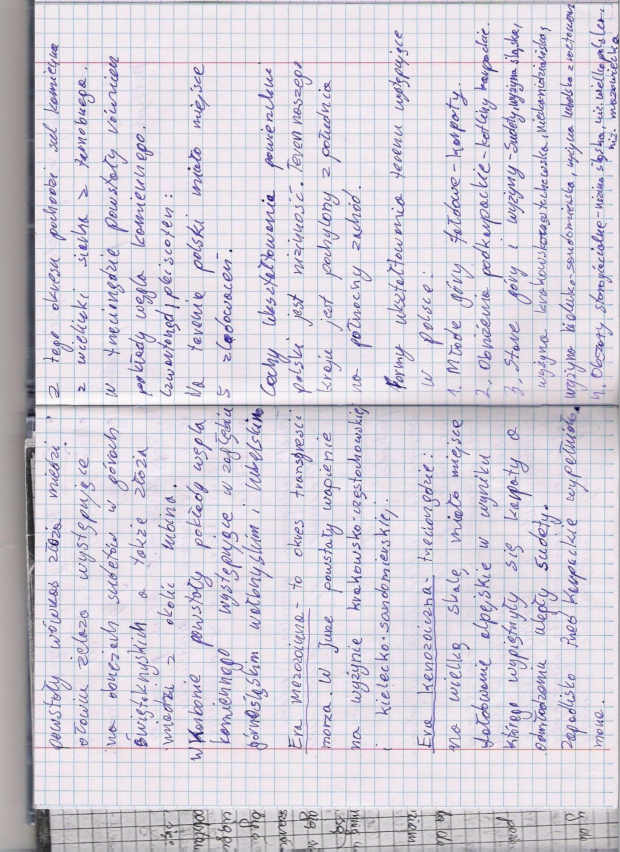 powstały wówczas złoża miedzi
ołowiu żelaza występujące
na obrzeżach sudetów w górach
Świętokrzyskich a także złoża
miedzi z okolic lubina.
W Karbonie powstały pokłady węgla
kamiennego występujące w zagłębiu
górnośląskim wałbrzyskim i lubelskim
Era mezozoiczna - to okres transgresji
morza. W Jurze powstały wapienie
na wyżynie krakowsko-częstochowskiej
i kielecko-sandomierskiej.
Era kenozoiczna - trzeciorzęd:
na wielką skalę miało miejsce
fałdowanie alpejskie w wyniku
którego wypiętrzyły się karpaty a
odmłodzeniu uległy Sudety.
zapadlisko Przed Karpackie wypełniło
morze.
Z tego okresu pochodzi sól kamienna
z wieliczki siarka z tarnobrzega.
W trzeciorzędzie powstały również
pokłady węgla kamiennego.
Czwartorzęd, plejscoten:
Na terenie polski miało miejsce
5 zlodowaceń.
Cechy ukształtowania powierzchni
polski jest nizinność. Teren naszego
kraju jest pochylony z południa
na północny zachód.
Formy ukształtowania terenu występujące
w polsce:
1. Młode góry fałdowe - karpaty.
2. Obniżenia podkarpackie - kotliny karpackie.
3. Stare góry i wyżyny - Sudety, wyżyna śląska,
wyżyna krakowsko-częstochowska, niecka nidziańska,
wyżyna kielecko-sandomierska, wyżyna lubelska z roztoczem
4. Obszary staroglacjalne - nizina śląska, niz. wielkopolska,
niz. mazowiecka